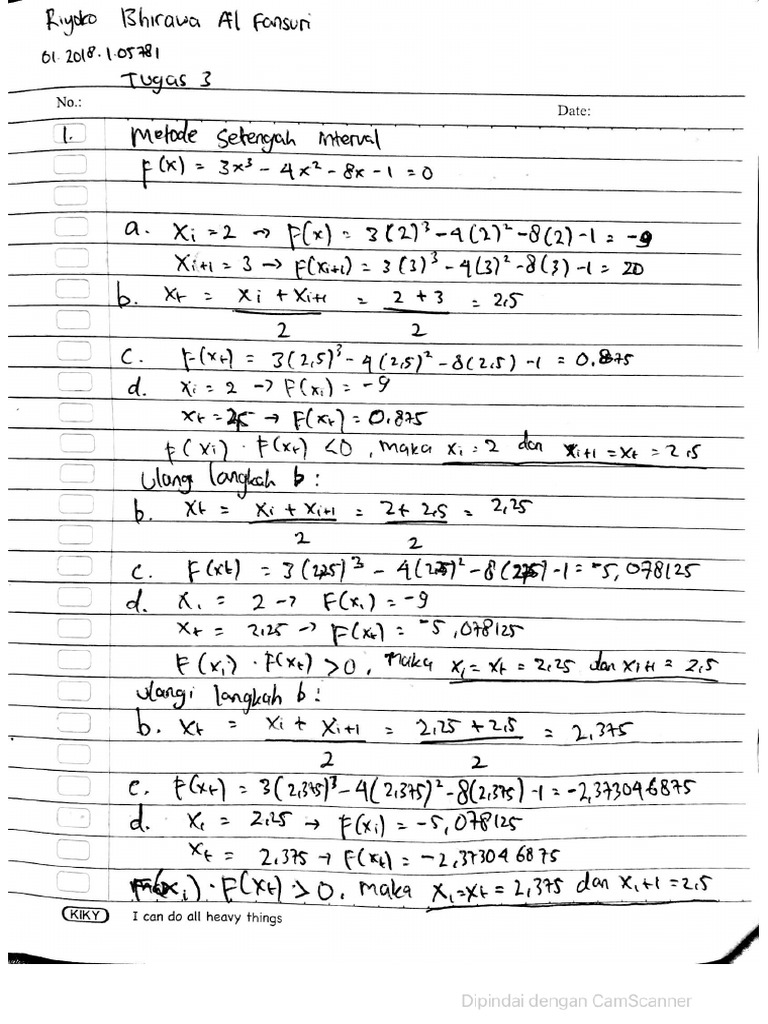 Riyoko Bhirawa Al Fansuri
01.2018.1.05781
Tugas 3
No.: Date:
1. Metode Setengah Interval
F(x) = 3x³ - 4x² - 8x - 1 = 0
a. Xi = 2 → F(x) = 3(2)³ - 4(2)² - 8(2) - 1 = -9
Xi+1 = 3 → F(Xi+1) = 3(3)³ - 4(3)² - 8(3) - 1 = 20
b. Xt = Xi + Xi+1 = 2 + 3 = 2,5
2 2
c. F(xt) = 3(2,5)³ - 4(2,5)² - 8(2,5) - 1 = 0.875
d. Xi = 2 → F(Xi) = -9
Xt = 2,5 → F(Xt) = 0.875
F(Xi) · F(Xt) < 0, maka Xi = 2 dan Xi+1 = Xt = 2,5
Ulangi langkah b :
b. Xt = Xi + Xi+1 = 2 + 2,5 = 2,25
2 2
c. F(xt) = 3(2,25)³ - 4(2,25)² - 8(2,25) - 1 = -5,078125
d. Xi = 2 → F(Xi) = -9
Xt = 2,25 → F(Xt) = -5,078125
F(Xi) · F(Xt) > 0, maka Xi = Xt = 2,25 dan Xi+1 = 2,5
Ulangi langkah b :
b. Xt = Xi + Xi+1 = 2,25 + 2,5 = 2,375
2 2
c. F(xt) = 3(2,375)³ - 4(2,375)² - 8(2,375) - 1 = -2,373046875
d. Xi = 2,25 → F(Xi) = -5,078125
Xt = 2,375 → F(Xt) = -2,373046875
F(Xi) · F(Xt) > 0, maka Xi = Xt = 2,375 dan Xi+1 = 2,5
KIKY I can do all heavy things
Dipindai dengan CamScanner